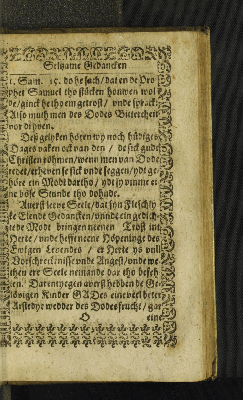 Selzame Gedancken
1. Sam. 15. do he sach / dat en de Pro
phet Samuel tho stücken houwen wol
de / ginck he tho em getrost / vnde sprack:
Also muth men des Dodes Bitterheit
vordryuen.
Deßgelyken hören wy noch hüdiges
Dages vaken ock van den / de sick gude
Christen röhmen / wenn men van Dode
redet / erheuen se sick vnde seggen / ydt ge
höre ein Modt dartho / ydt sy vmme ei
ne böse Stunde tho dohnde.
Auerst leue Seele / dat syn Fleischly
ke Elende Gedancken / vnnde ein gedich
tede Modt bringen nenen Trost im
Herte / vnde hefft nene Höpeninge des
Ewigen Levendes / er Herte ys voll
Vorschreckenisse vnde Angest / vnde we
then ere Seele nemande dar tho befeh
len. Darentyegen auerst hebben de Ge
löuigen Kinder GADes eine vele beter
Arstedye wedder des Dodes frucht / gar
O eine